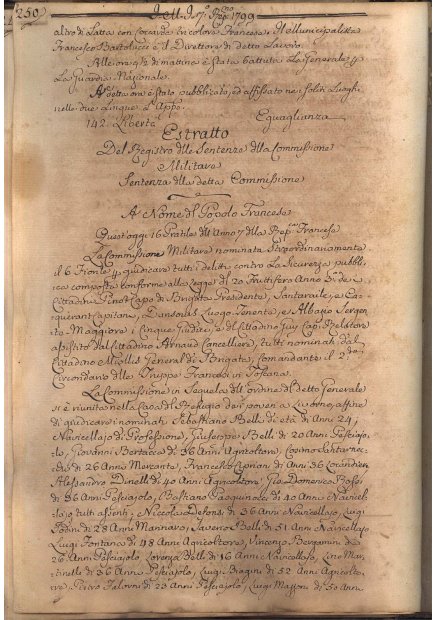 250
altro di Latta con Cocarde tre colora Francese. Il Municipalista
Francesco Bartolucci è il Direttore di detto Lavoro.
Alle ore 9½ di mattina è stata battuta La Generale
La Guardia Nazionale.
A detta ora è stato pubblicato, ed affissato nei soliti Luoghi
nelle due Lingue
142 Libertà Eguaglianza
Estratto
Del Registro delle Sentenze della Commissione
Militare
Sentenza della detta Commissione
A Nome del Popolo Francese
Quest'oggi 16 Pratile dell'Anno 7 della Francese
La Commissione Militare nominata Straordinariamente
il 6 Fiorile giudicare tutti i delitti contro La Sicurezza pubbli
ca composta conforme alla Legge del 20 Fruttifero Anno
Cittadini Capo di Brigata Presidente, Santaraile, e
Capitani, Luogo Tenente, Sergen
te Maggiore i Cinque Giudici, e del Cittadino Guy Cap. Relatore
assistito dal Cittadino Arnaud Cancelliere, tutti nominati dal
Cittadino Miollis General di Brigata, Comandante il 2do
Circondario delle Truppe Francesi in Toscana.
La Commissione in Sequela dell'ordine del detto Generale
si è riunita nella Casa del in Livorno, affine
di giudicare i nominati Sebastiano Belli di età di Anni 24,
Navicellajo di Professione, Giuseppe Belli di 20 Anni Pesciajo
lo, Giovanni Bertacca di 36 Anni Agricoltore,
di 26 Anni Mercante, Francesco Cipriani di Anni 36 Locandiere
Alessandro Dinelli di 40 Anni Agricoltore, Gio. Domenico Rossi
di 36 Anni Pesciajolo, Bastiano Pasquinucci di 40 Anni Navicel
lajo tutti assenti; Niccolao di 36 Anni Navicellajo, Luigi
di 28 Anni Marinaro, Saverio Belli di 51 Anni Navicellajo
Luigi Fontana di 48 Anni Agricoltore, Vincenzo Bergamini di
26 Anni Pesciajolo, Lorenzo Belli di 16 Anni Navicellajo, Lino Mar
tinelli di 36 Anni Pesciajolo, Luigi di 52 Anni Agricolto
re, Pietro di 23 Anni Pesciajolo, Luigi Mazzoni di 50 Anni